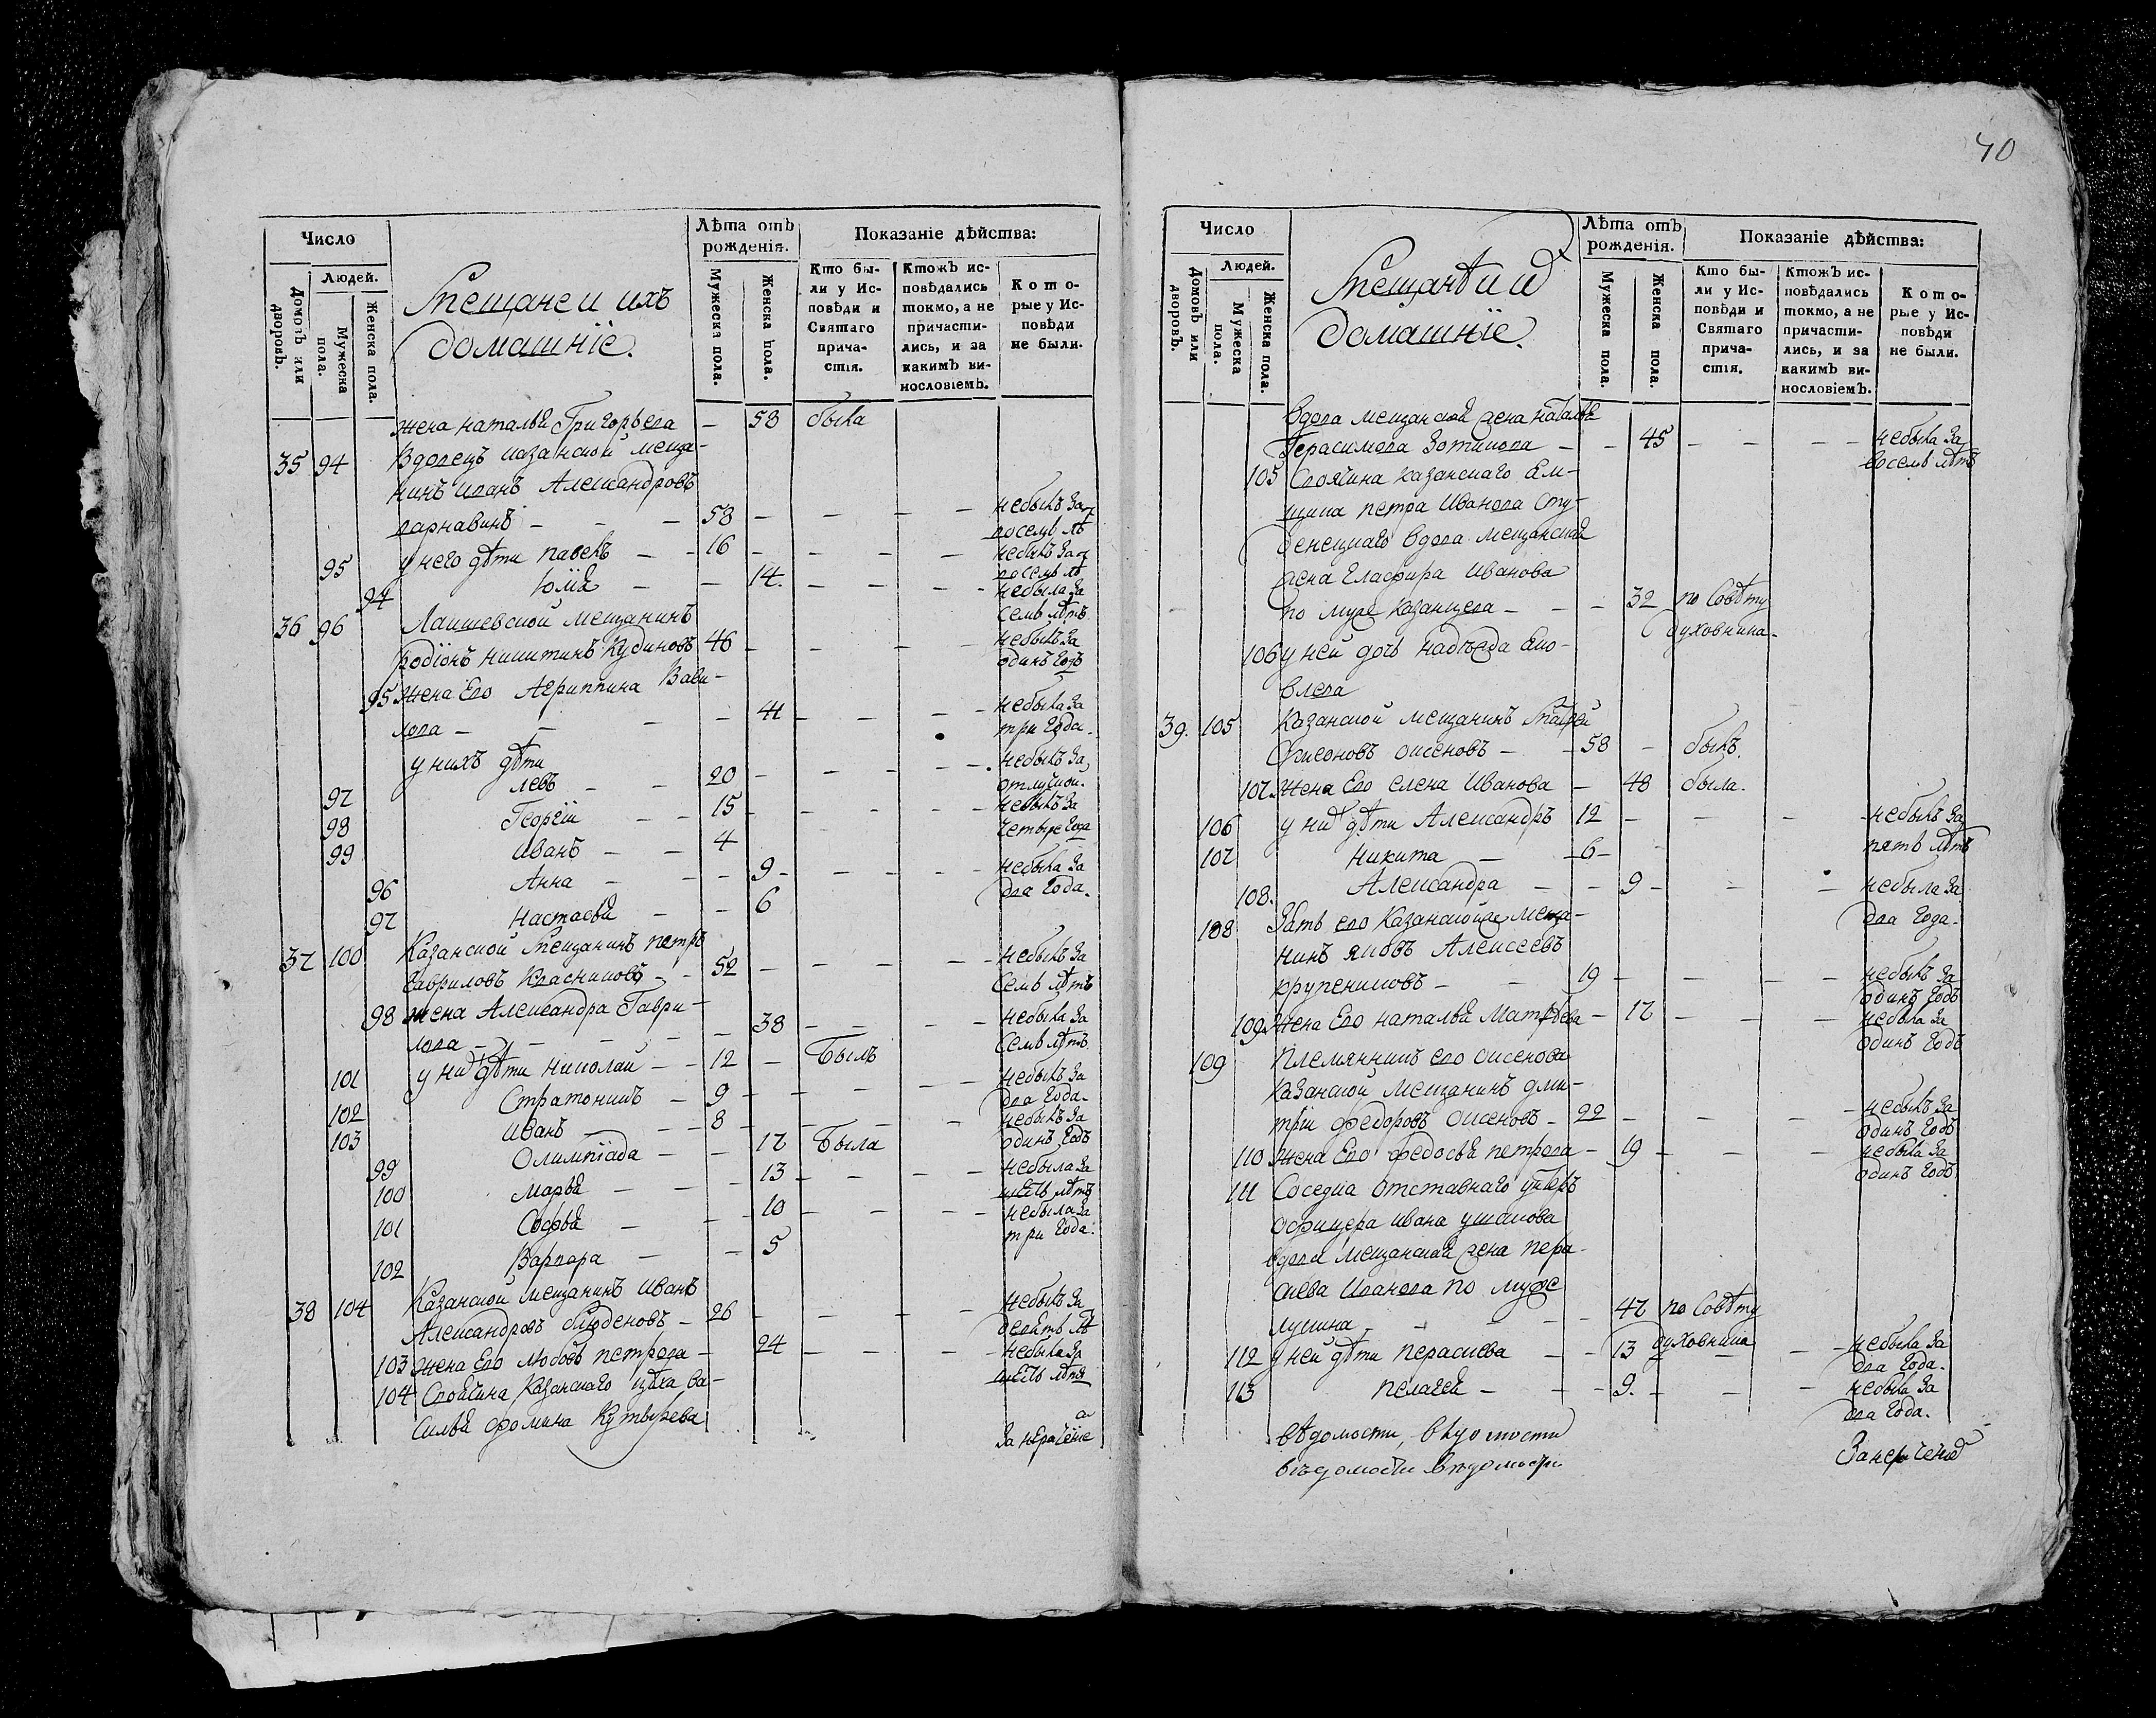 40
Число
Людей.
Домовъ или дворовъ.
Мужеска пола.
Женска пола.
Мещане и ихъ
домашніе.
Лѣта отъ рожденія.
Мужеска пола.
Женска пола.
Показаніе дѣйства:
Кто были у Исповѣди и Святаго причастія.
Ктожъ исповѣдались токмо, а не причастились, и за какимъ винословіемъ.
Которые у Исповѣди не были.
жена наталья Григорьева — 58 была
35 94 Вдовецъ казанской меща-
нинъ иванъ Александровъ
варнавинъ — 58 — — — небылъ за восемь лѣ
95 у него дѣти павелъ — 16 — — — небылъ за восемь лѣ
94 Юлія — 14. — — — небыла за семь лѣтъ
36 96 Лаишевской мещанинъ
родіонъ никитинъ Кудиновъ 46 — — — небылъ за одинъ годъ
95 жена Его Агриппина Вави-
лова — 41 — — — небыла за три года.
у нихъ дѣти
97 левъ — 20 — — — небылъ за отлучкой.
98 Георгій — 15 — — — небылъ за четыре года
99 иванъ — 4
96 Анна — 9 — — — небыла за два года.
97 настасья — 6
37 100 Казанской мещанинъ петръ
Гавриловъ Красниковъ — 52 — — — небылъ за семь лѣтъ
98 жена Александра Гаври-
лова — 38 — — — небыла за семь лѣтъ
101 у них дѣти николай — 12 — Былъ
102 Стратоникъ — 9 — — — небылъ за два года.
103 иванъ — 8 — — — небылъ за одинъ годъ
99 Олимпіада — 17 Была
100 марья — 13 — — — небыла за шесть лѣтъ
101 Софья — 10 — — — небыла за три года.
102 Варвара — 5
38 104 Казанской мещанинъ иванъ
Александровъ — 26 — — — небылъ за девять лѣ
103 жена Его любовь петрова — 24 — — — небыла за шесть лѣтъ
104 Своячина, Казанскаго цѣха ва-
силья фомина Кутырева
за нераченіе
Число
Людей.
Домовъ или дворовъ.
Мужеска пола.
Женска пола.
Мещане и их
домашніе.
Лѣта отъ рожденія.
Мужеска пола.
Женска пола.
Показаніе дѣйства:
Кто были у Исповѣди и Святаго причастія.
Ктожъ исповѣдались токмо, а не причастились, и за какимъ винословіемъ.
Которые у Исповѣди не были.
вдова мещанская жена наталья
Герасимова Зотикова — 45 — — — небыла за восемь лѣтъ
105 Своячина казанскаго Ям-
щика петра Иванова Сту-
денецкаго вдова мещанская
жена Гласфира Иванова
по муже казанцева — 32 по совѣту духовника
106 у ней дочь надежда
39. 105 Казанской мещанинъ
оксеновъ — 58 — былъ.
107. жена Его елена Иванова — 48 была.
106 у них дѣти Александръ 12 — — — небылъ за пять лѣтъ
107 никита — 6
108. Александра — 9 — — — небыла за два года.
108 Зять его Казанской меща-
нинъ яковъ Алексеевъ
крупениковъ — 19 — — — небылъ за одинъ годъ
109. жена Его наталья Матвеева — 17 — — — небыла за одинъ годъ
109 племянникъ его оксенова
казанской мещанинъ дми-
трій федоровъ оксеновъ — 22 — — — небылъ за одинъ годъ
110 жена Его федосья петрова — 19 — — — небыла за одинъ годъ
111 Соседка отставнаго унтеръ
офицера ивана ушакова
вдова мещанская жена пера-
скева Иванова по муже
лукина — 47 по совѣту духовника
112 у ней дѣти параскева — 13 — — — небыла за два года.
113 пелагея — 9. — — — небыла за два года.
вѣдомости, вѣдомости
вѣдомости вѣдомости
За нерачение